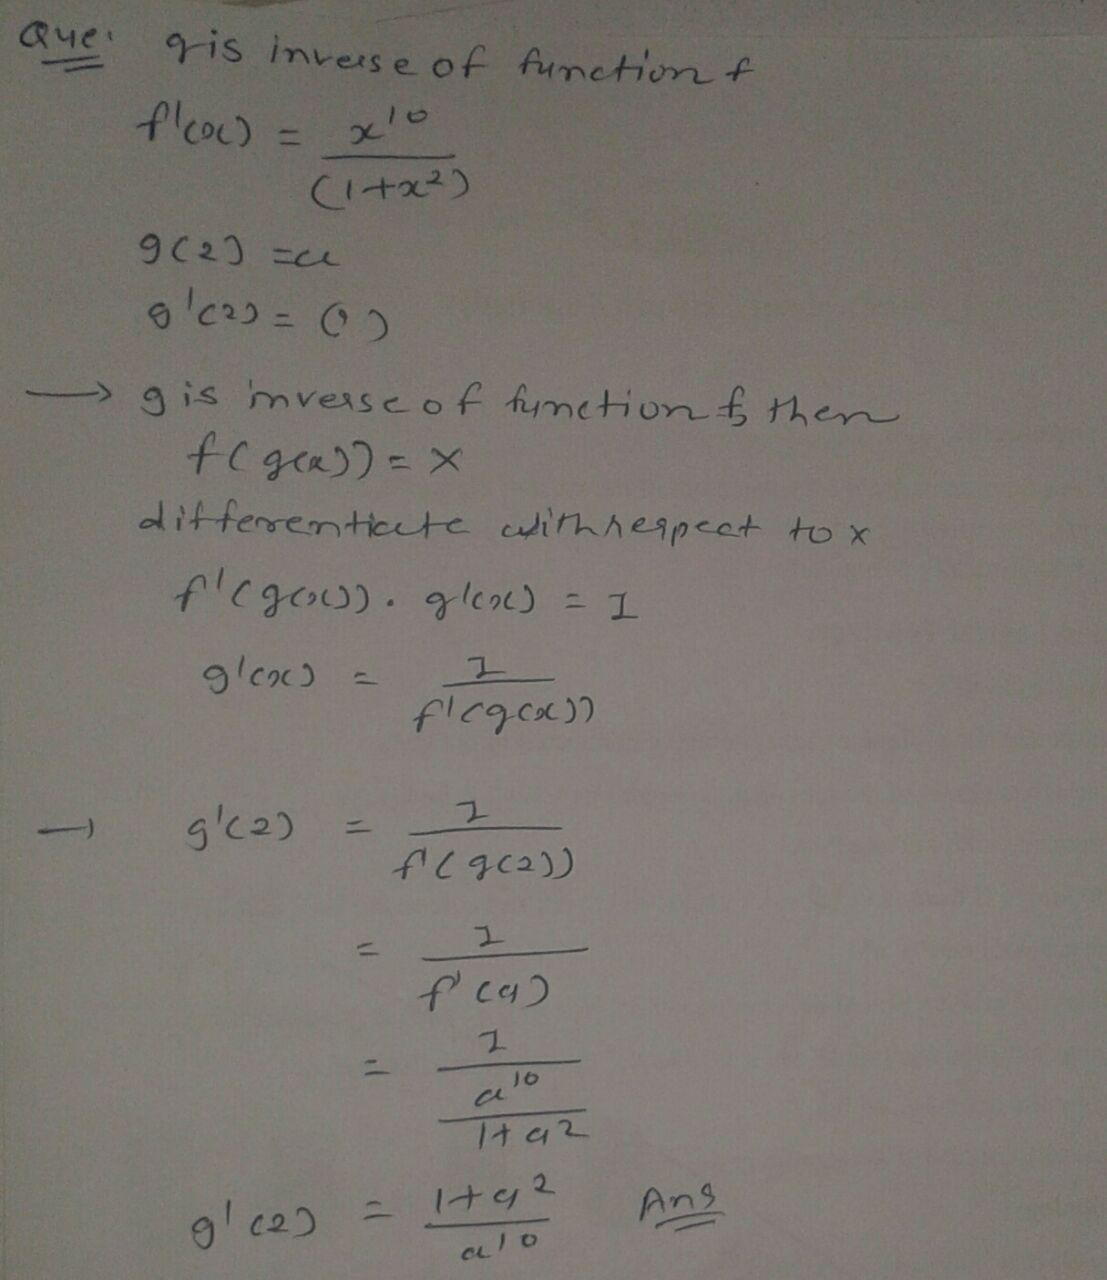 Que: g is inverse of function f
f'(x) = x^10 / (1+x^2)
g(2) = a
g'(2) = ( )
→ g is inverse of function f then
f(g(x)) = x
differentiate with respect to x
f'(g(x)). g'(x) = 1
g'(x) = 1 / f'(g(x))
→ g'(2) = 1 / f'(g(2))
= 1 / f'(a)
= 1 / (a^10 / 1+a^2)
g'(2) = 1+a^2 / a^10 Ans